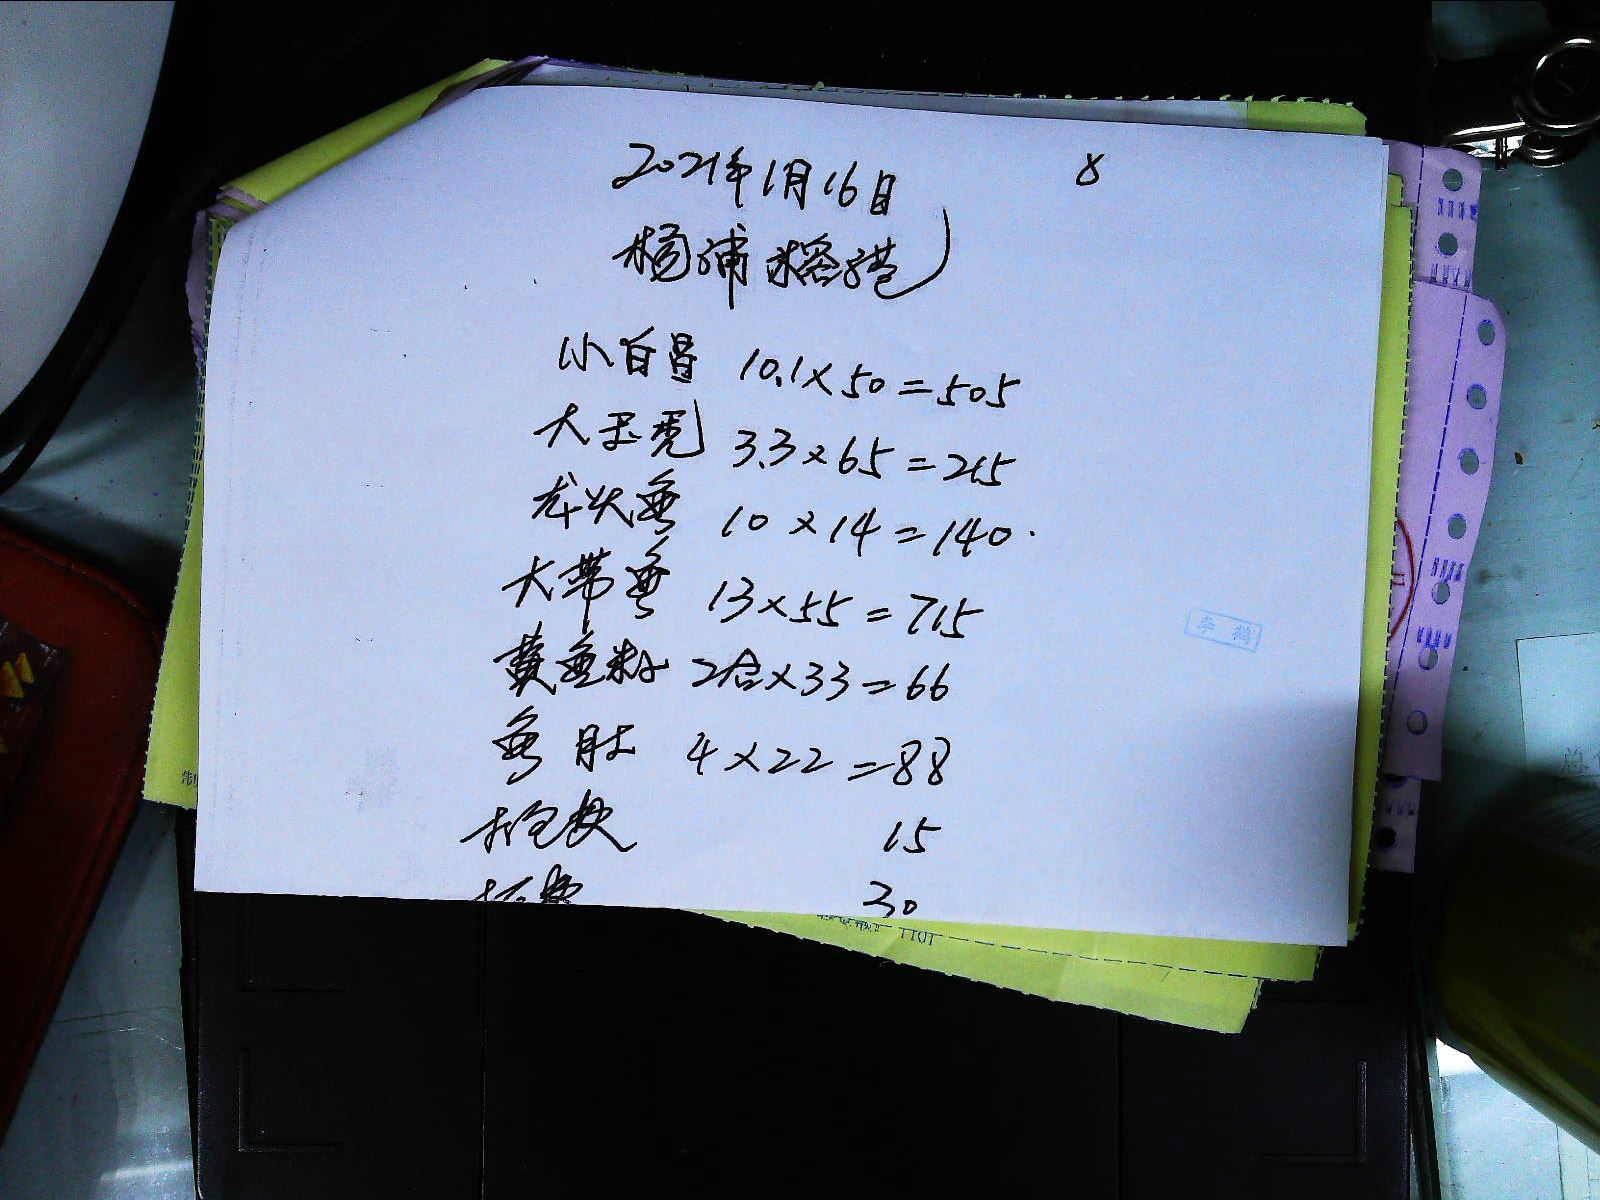 2021年1月16日
8
杨浦榕港
小白昌 10.1×50=505
大玉秃 3.3×65=215
龙头鱼 10×14=140
大带鱼 13×55=715
黄鱼籽 2合×33=66
鱼肚 4×22=88
15
30